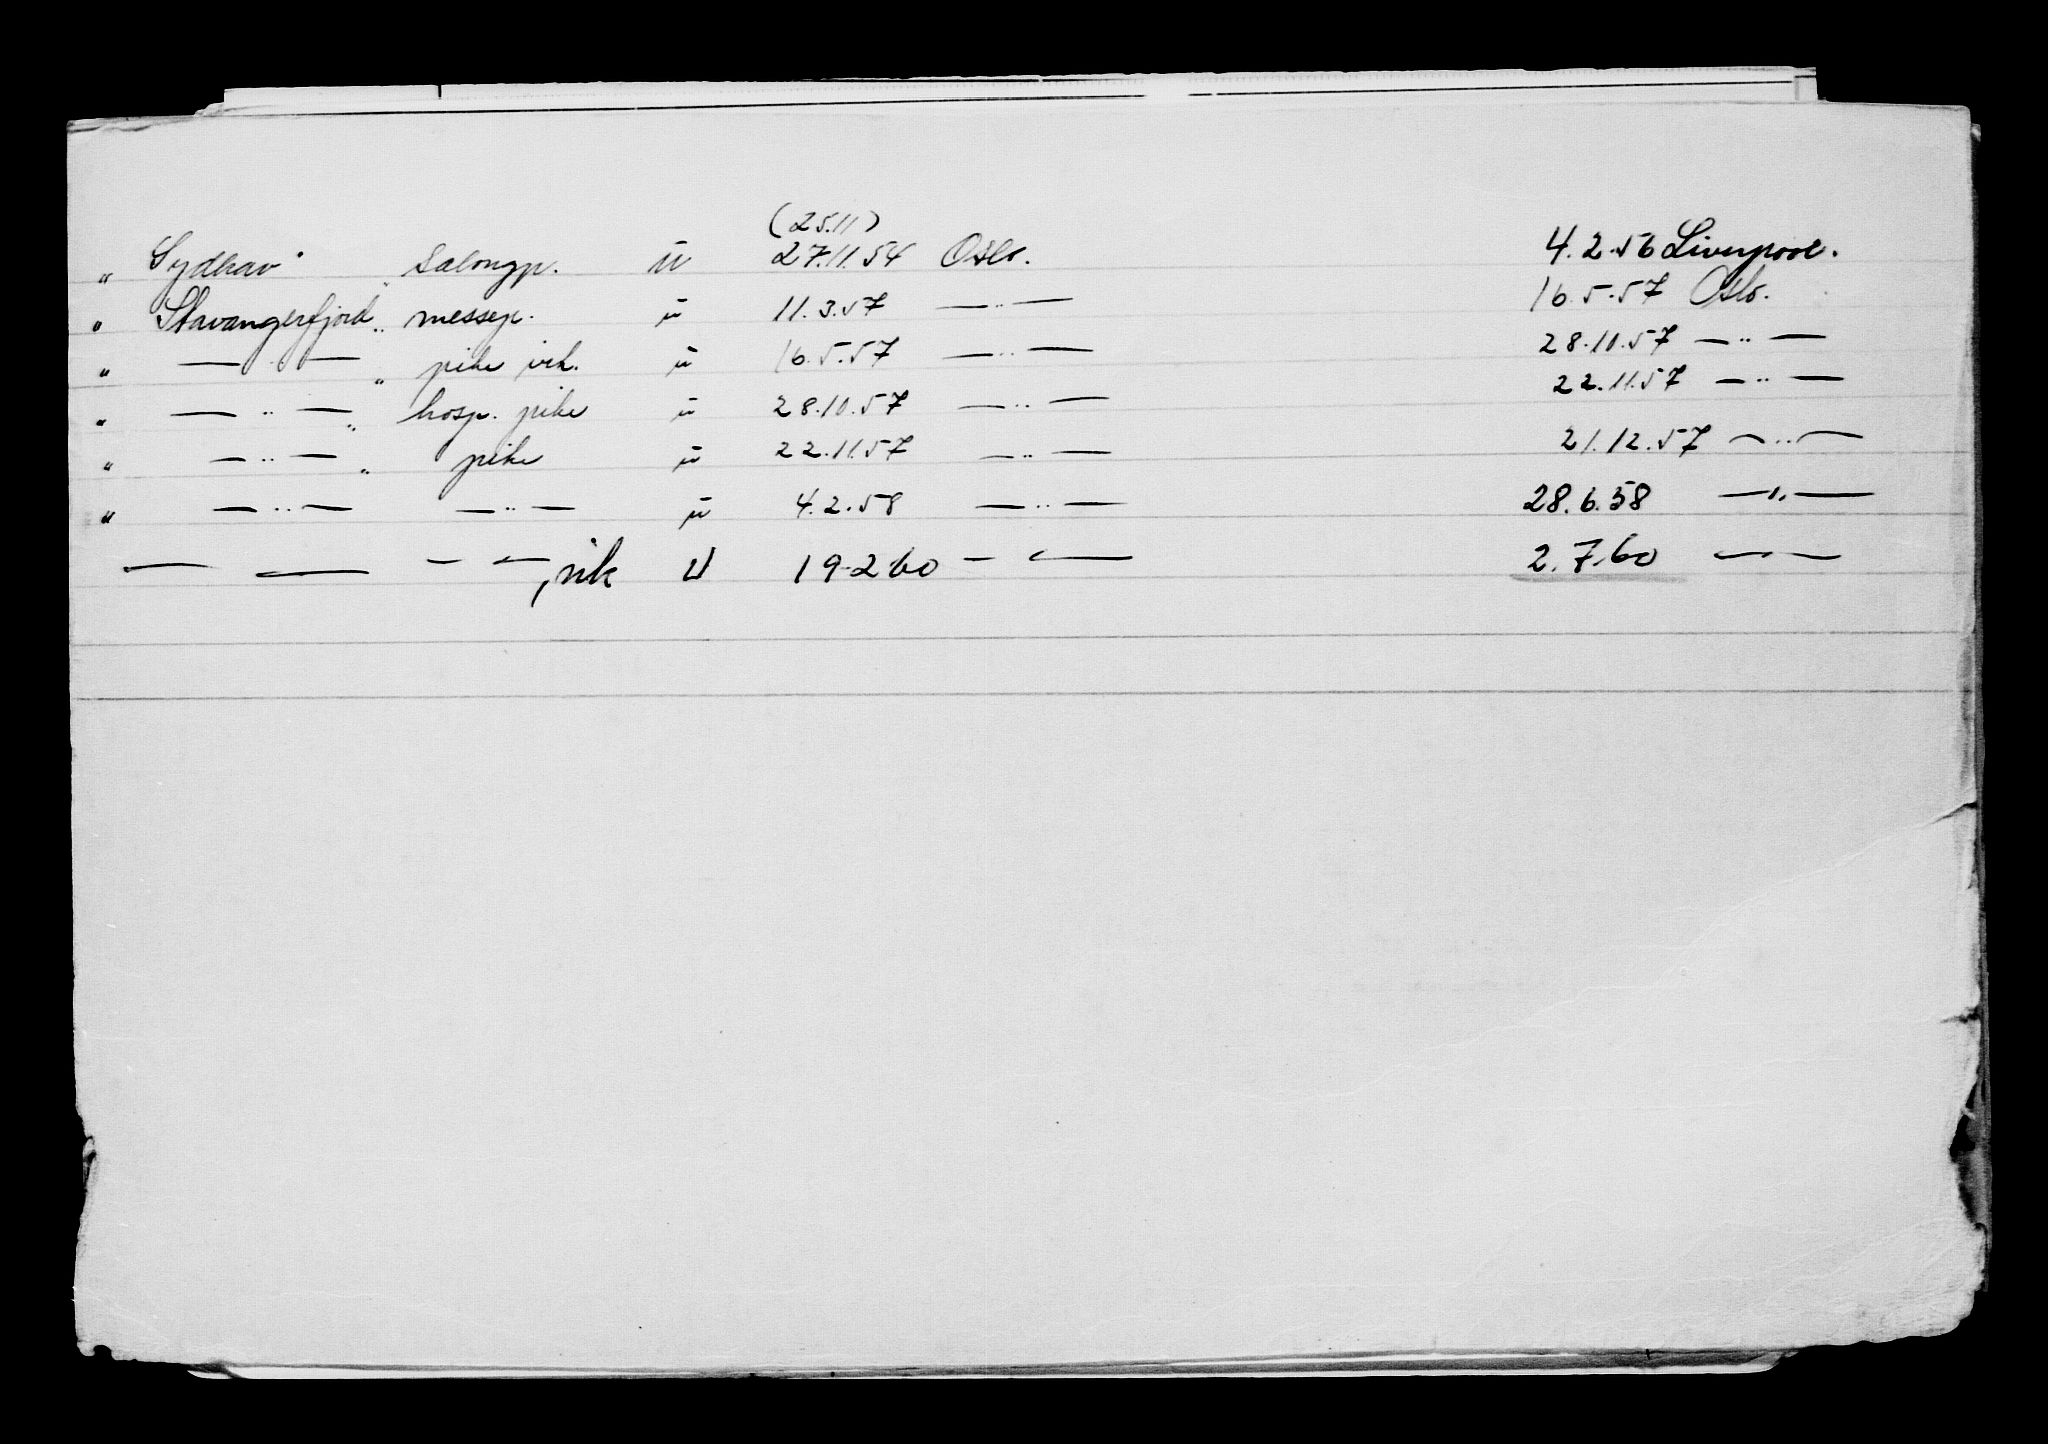 (25.11)
„ Sydhav" salongp. u 27.11.54 Oslo. 4.2.56 Liverpool.
„ Stavangerfjord „ messep. u 11.3.57 — „ — 16.5.57 Oslo.
„ — „ — „ pike vik. u 16.5.57 — „ — 28.10.57 — „ —
„ — „ — „ hosp. pike u 28.10.57 — „ — 22.11.57 — „ —
„ — „ — „ pike u 22.11.57 — „ — 21.12.57 — „ —
„ — „ — — „ — u 4.2.58 — „ — 28.6.58 — „ —
— — — —, vik u 19-2-60 — — 2.7.60 — —